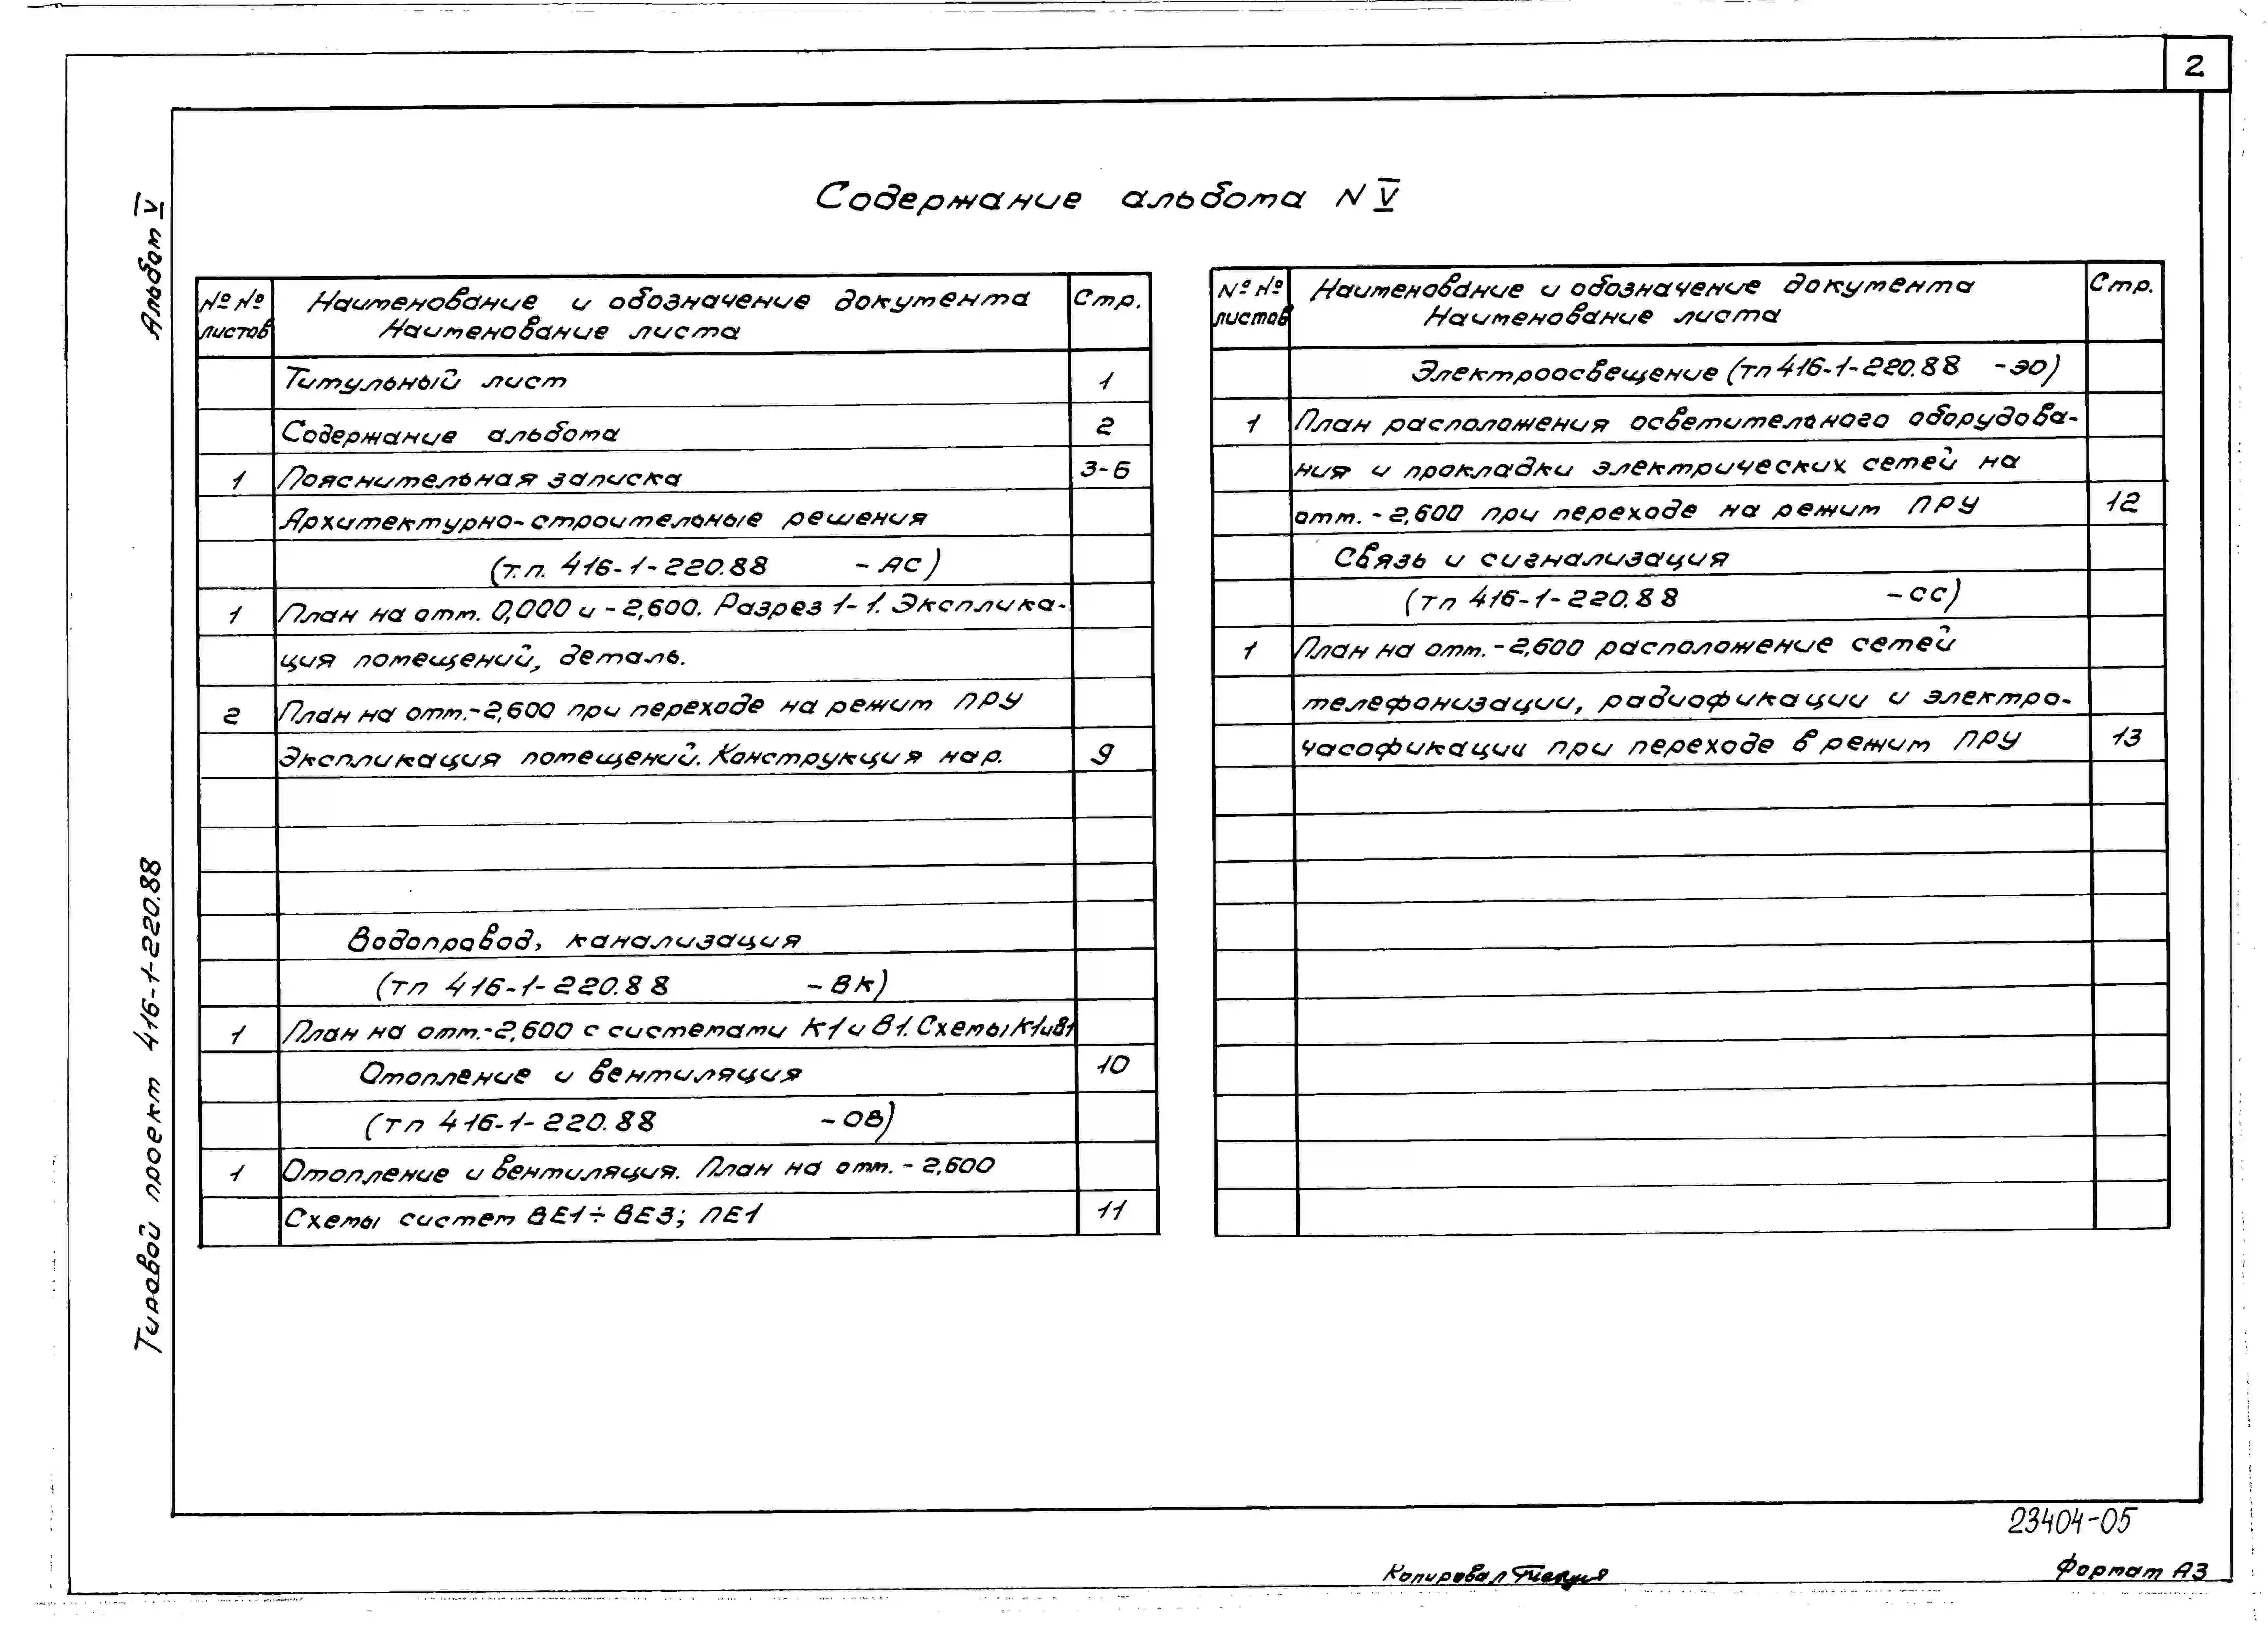 2
Содержание альбома N V
Альбом V
Типовой проект 416-1-220.88
№№ листов
Наименование и обозначение документа
Наименование листа
Стр.
Титульный лист 1
Содержание альбома 2
1 Пояснительная записка 3-6
Архитектурно-строительные решения
(т.п. 416-1-220.88 -АС)
1 План на отм. 0,000 и -2,600. Разрез 1-1. Эксплика-
ция помещений, деталь.
2 План на отм.-2,600 при переходе на режим ПРУ
Экспликация помещений. Конструкция нар. 9
Водопровод, канализация
(тп 416-1-220.88 -ВК)
1 План на отм.-2,600 с системами К1 и В1. Схемы К1 и В1
Отопление и вентиляция 10
(тп 416-1-220.88 -ОВ)
1 Отопление и вентиляция. План на отм. -2,600
Схемы систем ВЕ1÷ВЕ3; ПЕ1 11
№№ листов
Наименование и обозначение документа
Наименование листа
Стр.
Электроосвещение (тп 416-1-220.88 -ЭО)
1 План расположения осветительного оборудова-
ния и прокладки электрических сетей на
отм. -2,600 при переходе на режим ПРУ 12
Связь и сигнализация
(тп 416-1-220.88 -СС)
1 План на отм. -2,600 расположение сетей
телефонизации, радиофикации и электро-
часофикации при переходе в режим ПРУ 13
23404-05
Копировал
Формат А3